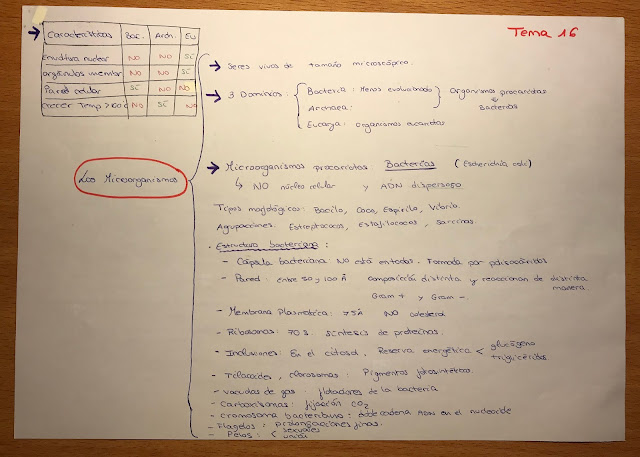 Tema 16
Características Bac. Arch. Eu
Envoltura nuclear NO NO SÍ
orgánulos membr NO NO SÍ
Pared celular SÍ NO NO
crecer Temp >100 NO SÍ NO
Los Microorganismos
Seres vivos de tamaño microscópico.
3 Dominios: Bacteria: Menos evolucionado
Archaea:
Eucarya: organismos eucariotas
Organismos procariotas
Bacterias
Microorganismos procariotas: Bacterias (Escherichia coli)
NO núcleo celular y ADN disperso
Tipos morfológicos: Bacilo, Coco, Espirilo, Vibrio.
Agrupaciones: Estreptococos, Estafilococos, Sarcinas.
Estructura bacteriana:
- Cápsula bacteriana: No está en todas. Formada por polisacáridos
- Pared: entre 50 y 100 Å composición distinta y reaccionan de distinta manera.
Gram + y Gram -.
- Membrana Plasmática: 75Å NO colesterol
- Ribosomas: 70 S. síntesis de proteínas.
- Inclusiones: En el citosol, Reserva energética < glucógeno
triglicéridos.
- Tilacoides, clorosomas: Pigmentos fotosintéticos.
- vacuolas de gas: flotadores de la bacteria
- Carboxisomas: fijación CO2
- cromosoma bacteriano: doble cadena ADN en el nucleoide
- Flagelos: prolongaciones finas.
- Pelos: < sexuales